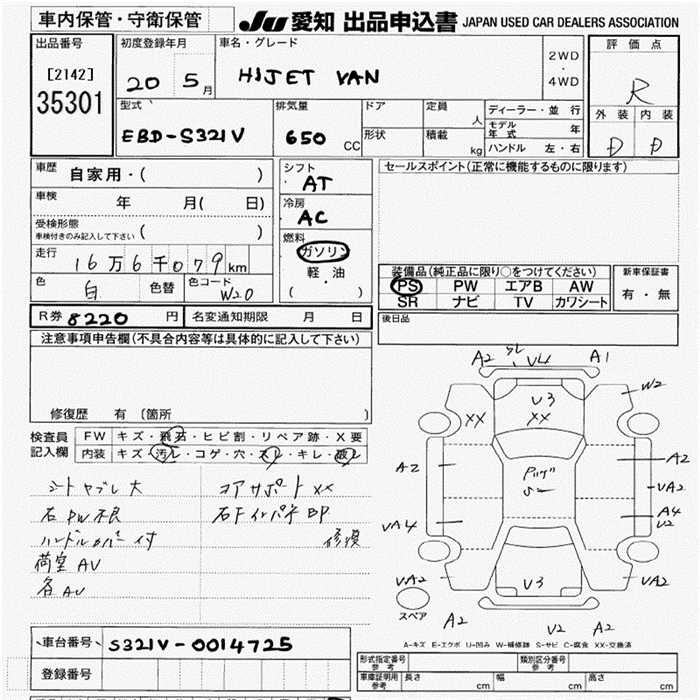 車内保管・守衛保管 JU 愛知 出品申込書 JAPAN USED CAR DEALERS ASSOCIATION
出品番号
[2142]
35301
初度登録年月
20 5 月
車名・グレード
HIJET VAN
2WD
・
4WD
評価点
R
外装 内装
D D
型式
EBD-S321V
排気量
650 CC
ドア
形状
定員 人
積載 kg
ディーラー・並行
モデル年式 年
ハンドル 左・右
車歴
自家用・( )
車検 年 月( 日)
受検形態
車検付きのみ記入して下さい ( )
走行
16万6千079km
色 白 色替 色コード W20
シフト
AT
冷房
AC
燃料
ガソリン
軽・油
( )
セールスポイント(正常に機能するものに限ります)
装備品(純正品に限り○をつけてください)
PS PW エアB AW
SR ナビ TV カワシート
新車保証書
有・無
R券 8220 円 名変通知期限 月 日
後日品
注意事項申告欄(不具合内容等は具体的に記入して下さい)
修復歴 有 (箇所 )
検査員
記入欄
FW キズ・飛石・ヒビ割・リペア跡・X要
内装 キズ・汚レ・コゲ・穴・スレ・キレ・破レ
シートヤブレ大
コアサポートXX
右PW不良
右Fインパネ部
ハンドルカバー付
修復
荷室AU
各AU
A2 V4 A1
W2
U3
XX
XX
A2
A2
VA2
VA4
A4
U2
VA2
U3
VA2
スペア
A2
V2
A2
A-キズ E-エクボ U-凹み W-補修跡 S-サビ C-腐食 XX-交換済
車台番号 S321V-0014725
登録番号
形式指定番号
参考
類別区分番号
参考
車庫証明用
参考
長さ cm 幅 cm 高さ cm